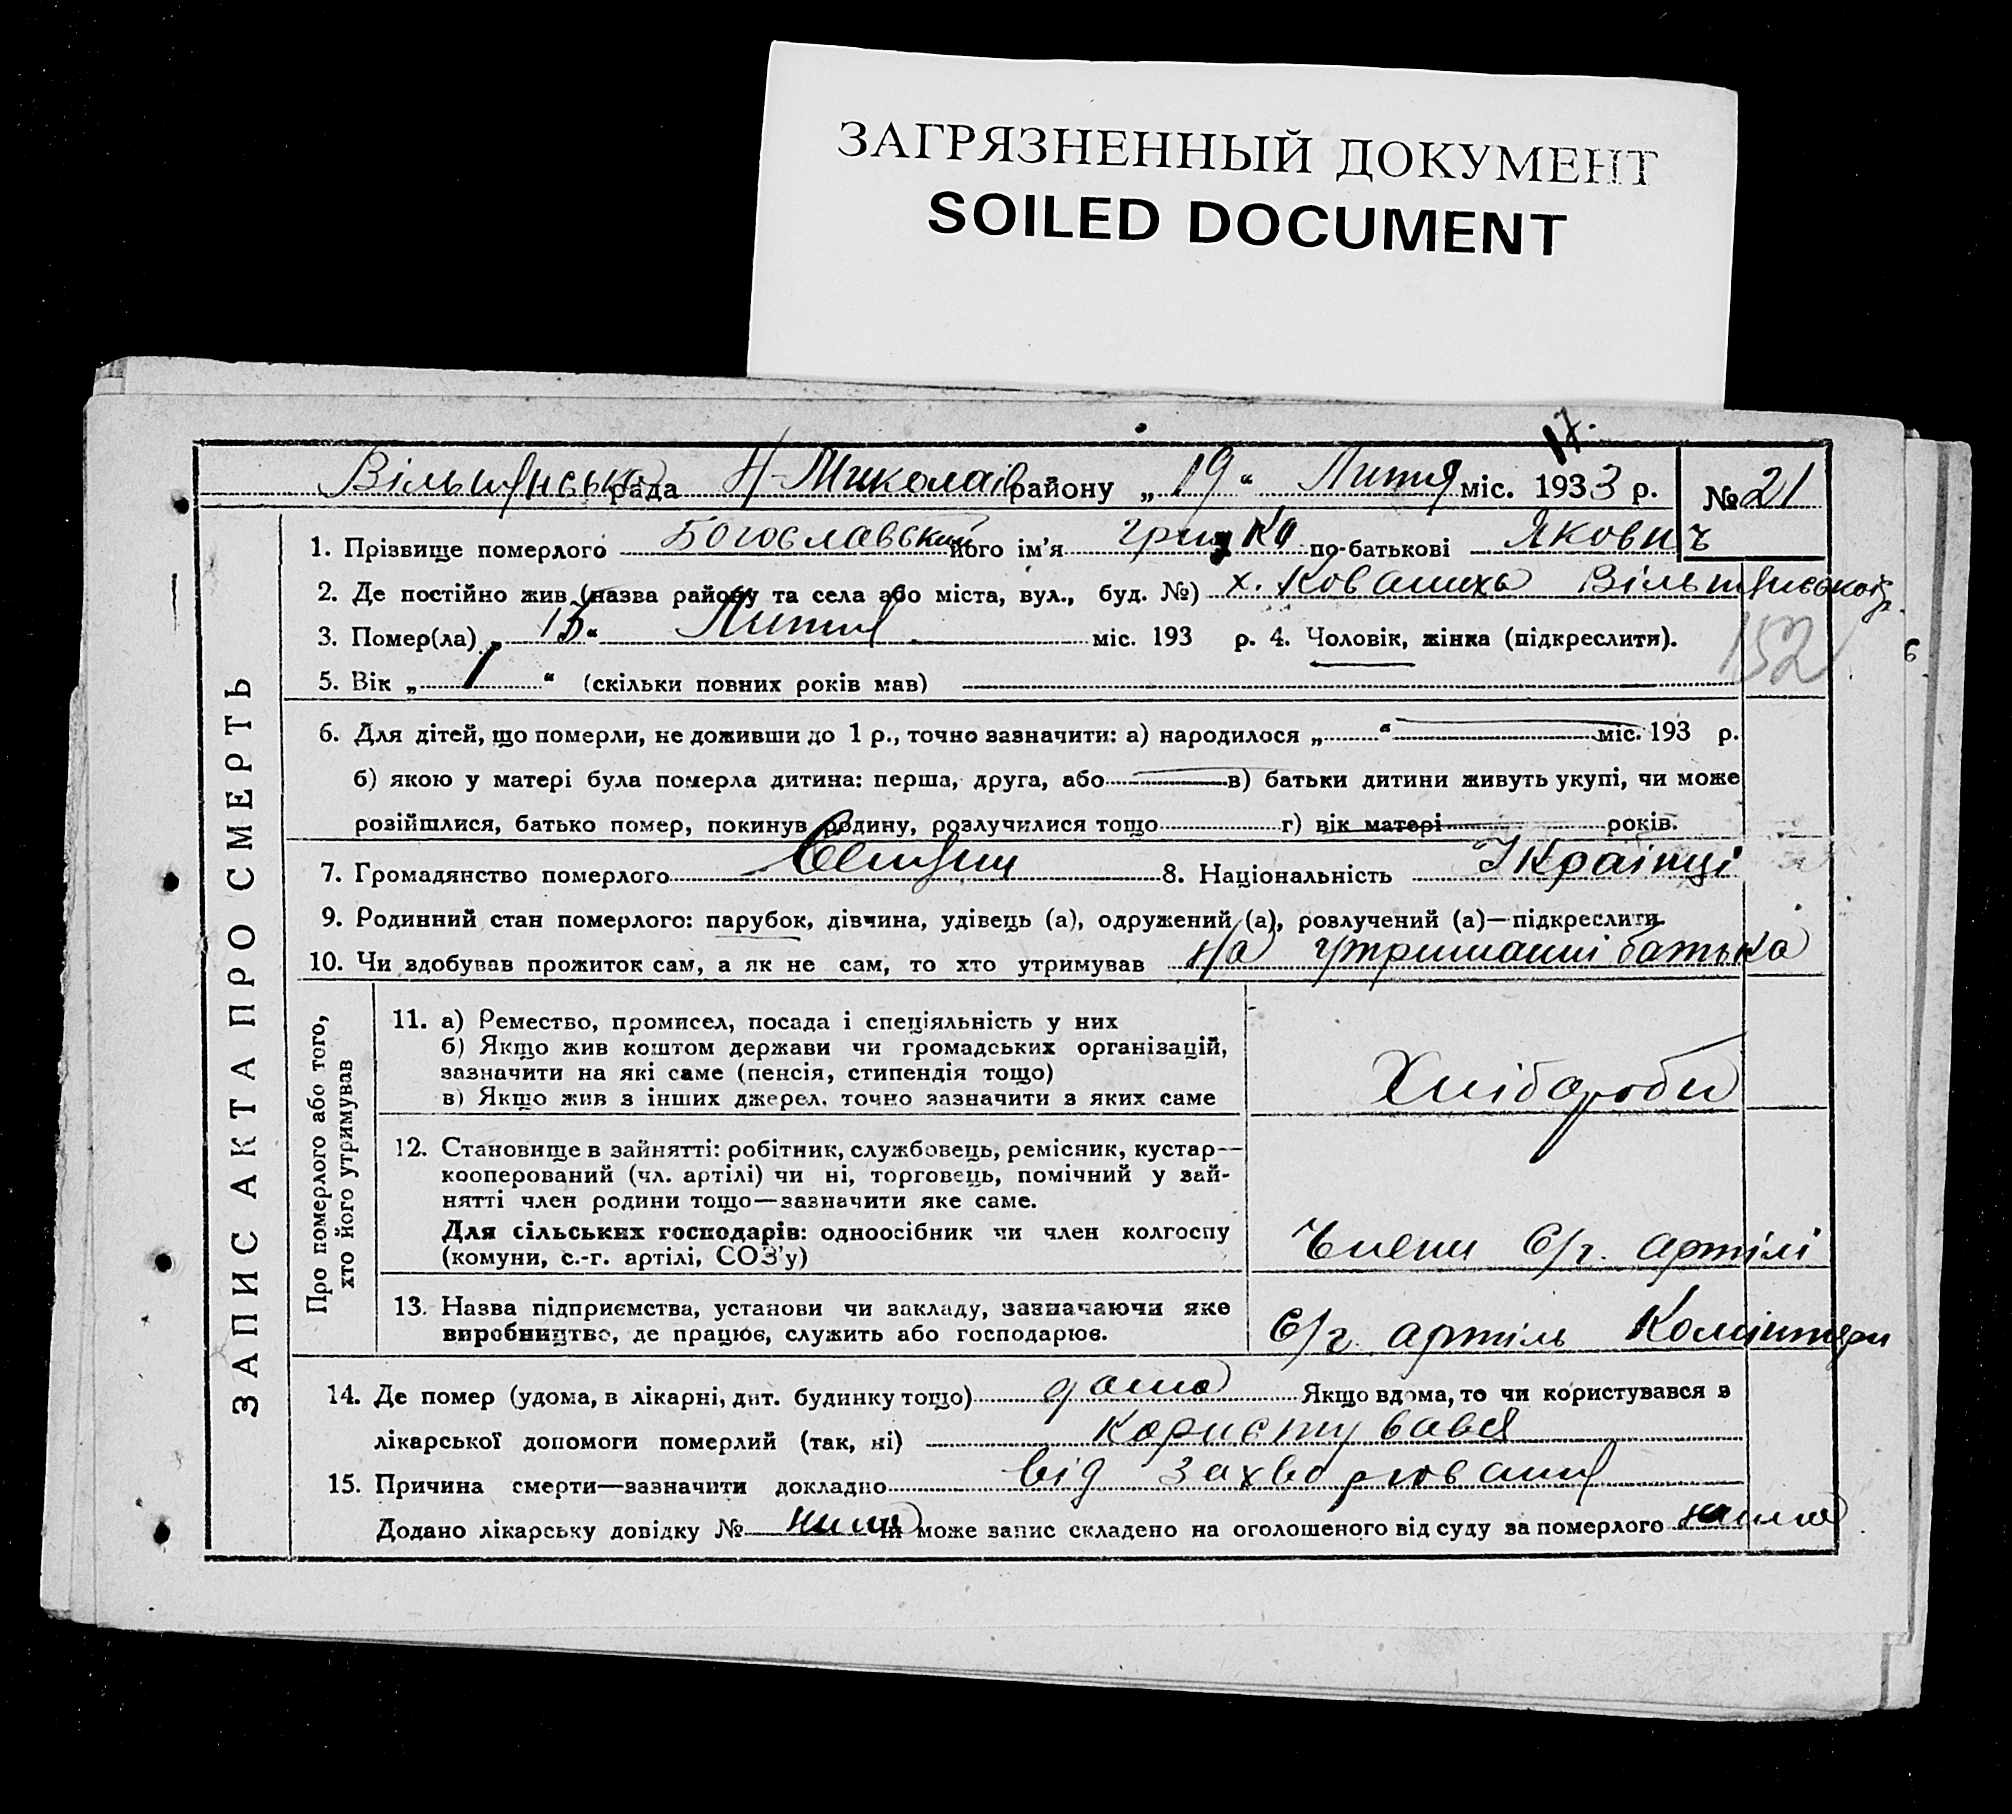 ЗАГРЯЗНЕННЫЙ ДОКУМЕНТ
SOILED DOCUMENT
17.
рада Н-Миколаїв району „ 19 “ Лютня міс. 1933 р. № 21
ЗАПИС АКТА ПРО СМЕРТЬ
1. Прізвище померлого Богославский його ім'я Грицко по-батькові Якович
2. Де постійно жив (назва району та села або міста, вул., буд. №) х. Ковалиха
3. Помер(ла) „ 15 “ Лютня міс. 193 р. 4. Чоловік, жінка (підкреслити).
152
6
5. Вік „ 1 “ (скільки повних років мав)
6. Для дітей, що померли, не доживши до 1 р., точно зазначити: а) народилося „ “ міс. 193 р.
б) якою у матері була померла дитина: перша, друга, або в) батьки дитини живуть укупі, чи може
розійшлися, батько помер, покинув родину, розлучилися тощо г) вік матері років.
7. Громадянство померлого Селяни 8. Національність Українці
9. Родинний стан померлого: парубок, дівчина, удівець (а), одружений (а), розлучений (а)—підкреслити.
10. Чи здобував прожиток сам, а як не сам, то хто утримував на утриманні батька
Про померлого або того,
хто його утримував
11. а) Ремество, промисел, посада і спеціяльність у них
б) Якщо жив коштом держави чи громадських організацій,
зазначити на які саме (пенсія, стипендія тощо)
в) Якщо жив з інших джерел, точно зазначити з яких саме
Хлібороби
12. Становище в зайнятті: робітник, службовець, ремісник, кустар—
кооперований (чл. артілі) чи ні, торговець, помічний у зай-
нятті член родини тощо—зазначити яке саме.
Для сільських господарів: одноосібник чи член колгоспу
(комуни, с.-г. артілі, СОЗ'у)
Члени С/г. артілі
13. Назва підприємства, установи чи закладу, зазначаючи яке
виробництво, де працює, служить або господарює.
С/г. артіль Комінтерн
14. Де помер (удома, в лікарні, дит. будинку тощо) дома Якщо вдома, то чи користувався з
лікарської допомоги померлий (так, ні) користувався
15. Причина смерти—зазначити докладно від захворювання
Додано лікарську довідку № нима чи може запис складено на оголошеного від суду за померлого нима